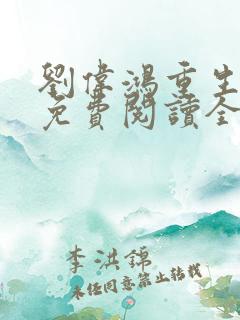 劉偉鴻重生
免費閱讀全
李洪錦
未經同意禁止轉載